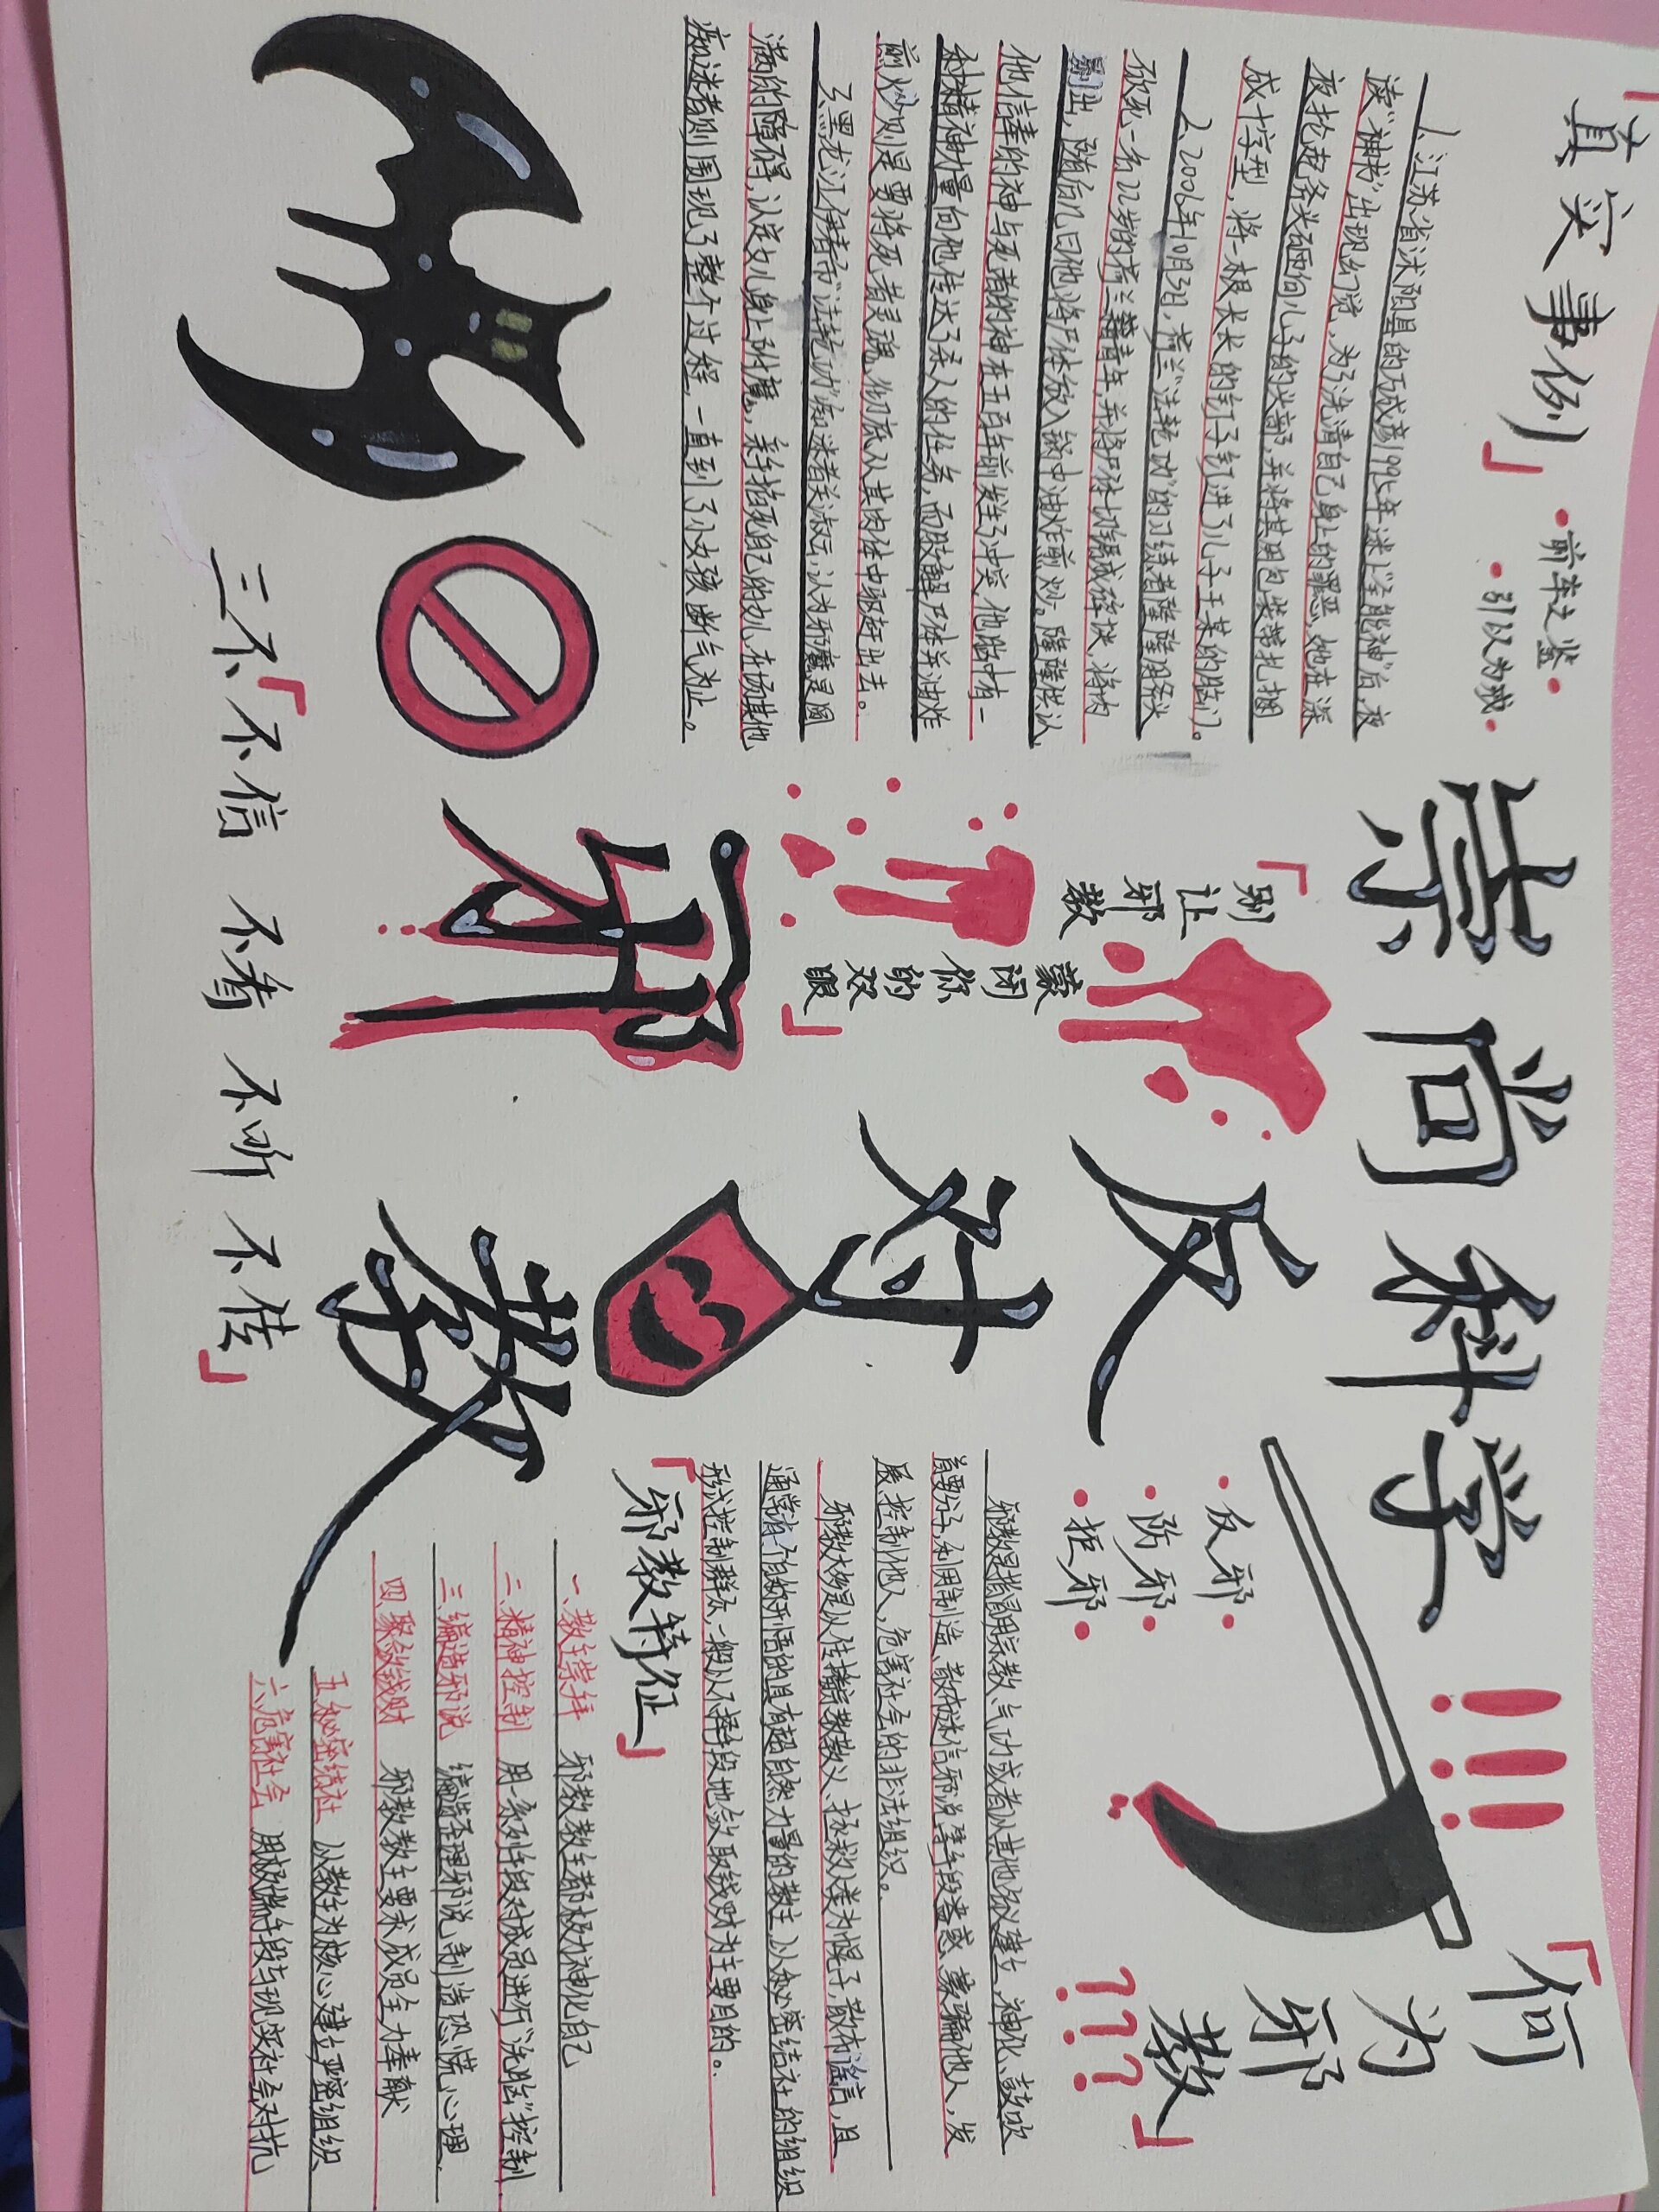 崇尚科学!!!
反对
邪教
「真实事例」
·前车之鉴·
·引以为戒·
1.江苏省沭阳县的 成彦1998年迷上“全能神”后,夜
读“神书”出现幻觉,为了洗清自己身上的罪恶,她在深
夜抡起斧头砸向儿子的头部,并将其用包装带扎捆
成十字型,将一根长长的钉子钉进了儿子王某的脑门。
2.2006年10月3日,荷兰“法轮功”的习练者隆隆用斧头
砍死一名22岁的荷兰籍青年,并将尸体切锯成碎块,将肉
剔出,随后几日他将尸体放入锅中油炸煎炒。隆隆供认,
他信奉的神与死者的神在五百年前发生了冲突,他脑中有一
种精神力量向他传达了杀人的任务,而肢解尸体并油炸
煎炒则是要将死者灵魂彻底从其肉体中驱赶出去。
3.黑龙江伊春市“法轮功”痴迷者关淑云,认为邪魔是圆
满的障碍,认定女儿身上附魔,亲手掐死自己的女儿,在场其他
痴迷者则围观了整个过程,一直到了小女孩断气为止。
「别让邪教
蒙闭你的双眼」
三不「不信 不看 不听 不传」
·反邪·
·防邪·
·拒邪·
「何为邪教???」
邪教是指冒用宗教、气功或者以其他名义建立,神化、鼓吹
首要分子,利用制造、散布迷信邪说等手段蛊惑、蒙骗他人,发
展、控制他人,危害社会的非法组织。
邪教大多是以传播宗教教义、拯救人类为幌子,散布谣言,且
通常有一个自称开悟的具有超自然力量的教主,以秘密结社的组织
形式控制群众,一般以不择手段地敛取钱财为主要目的。
「邪教特征」
一、教主崇拜 邪教教主都极力神化自己
二、精神控制 用一系列手段对成员进行“洗脑”控制
三、编造邪说 编造歪理邪说,制造恐慌心理
四、聚敛钱财 邪教教主要求成员全力奉献
五、秘密结社 以教主为核心建立严密组织
六、危害社会 用极端手段与现实社会对抗